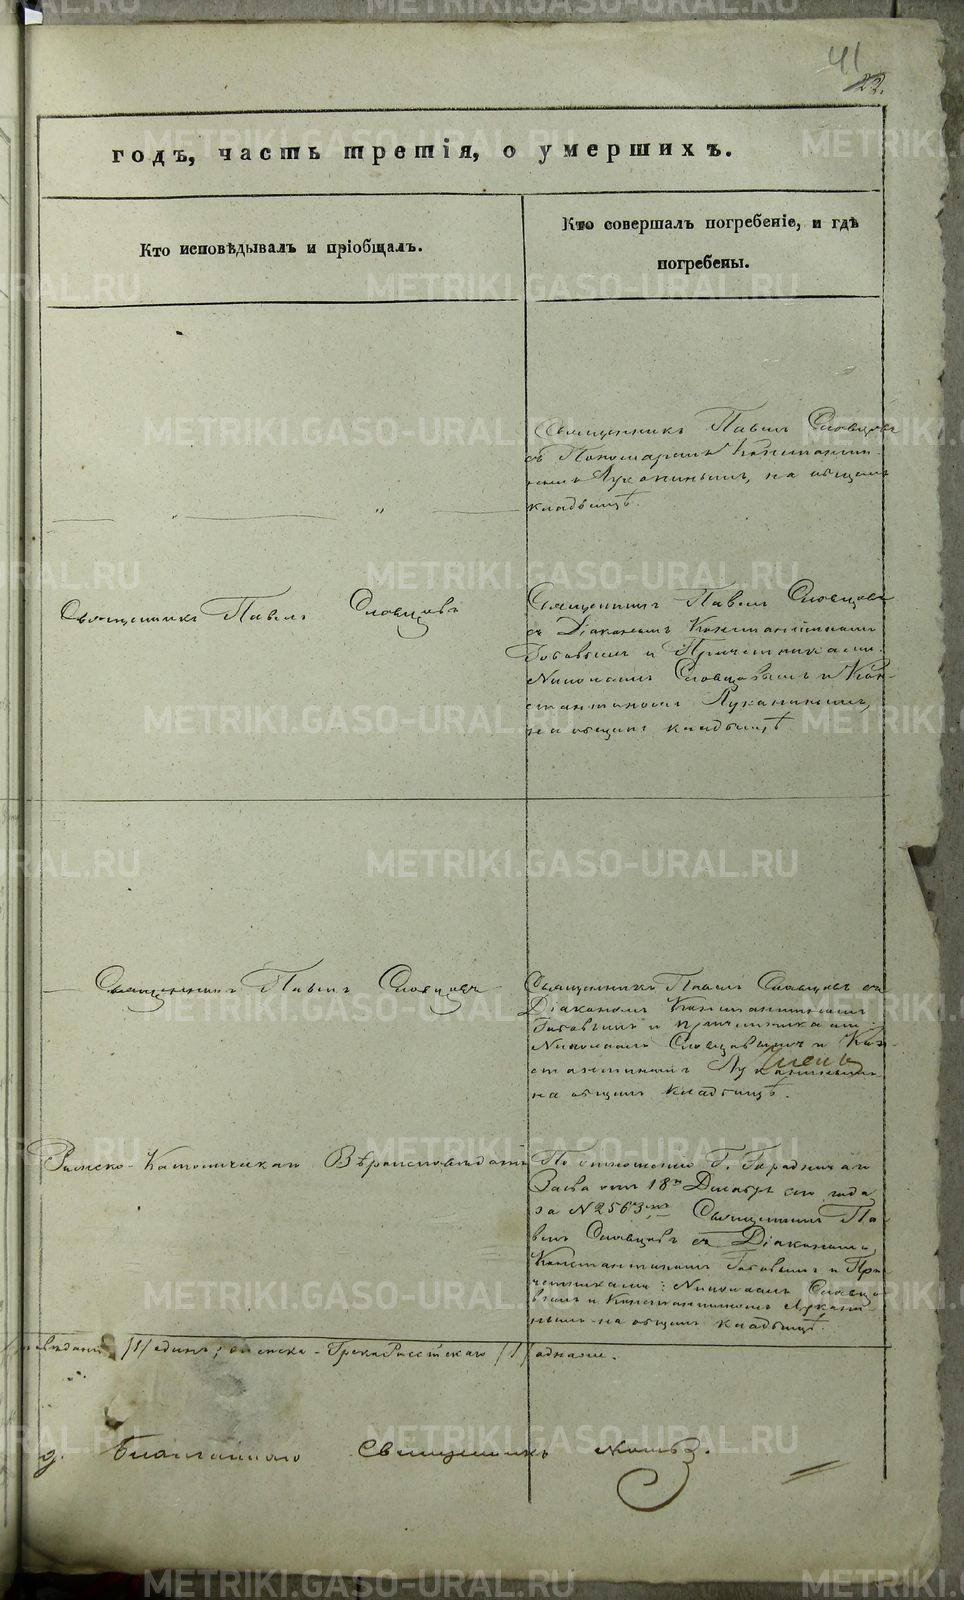 41
22.
годъ, часть третія, о умершихъ.
Кто исповѣдывалъ и пріобщалъ.
Кто совершалъ погребеніе, и гдѣ
погребены.
Священникъ Павелъ Словцовъ
съ Пономаремъ Константи-
номъ Луканинымъ, на общемъ
кладбищѣ.
Священникъ Павелъ Словцовъ
Священникъ Павелъ Словцовъ
съ Діакономъ Константиномъ
и Причетниками:
Николаемъ Словцовымъ и Кон-
стантиномъ Луканинымъ,
на общемъ кладбищѣ.
Священникъ Павелъ Словцовъ
Священникъ Павелъ Словцовъ съ
Діакономъ Константиномъ
и причетниками:
Николаемъ Словцовымъ и Кон-
стантиномъ Луканинымъ
на общемъ кладбищѣ.
Римско-Католическаго Вѣроисповѣданія
По отношенію Г. Городничаго
отъ 18го Декабря сего года
за №2563мъ Священникъ Па-
велъ Словцовъ съ Діакономъ
Константиномъ и При-
четниками: Николаемъ Словцо-
вымъ и Константиномъ Лукани-
нымъ на общемъ кладбищѣ.
/1/ одинъ; Греко-Россійскаго /1/ одного.
Благочинного Священникъ
METRIKI.GASO-URAL.RU